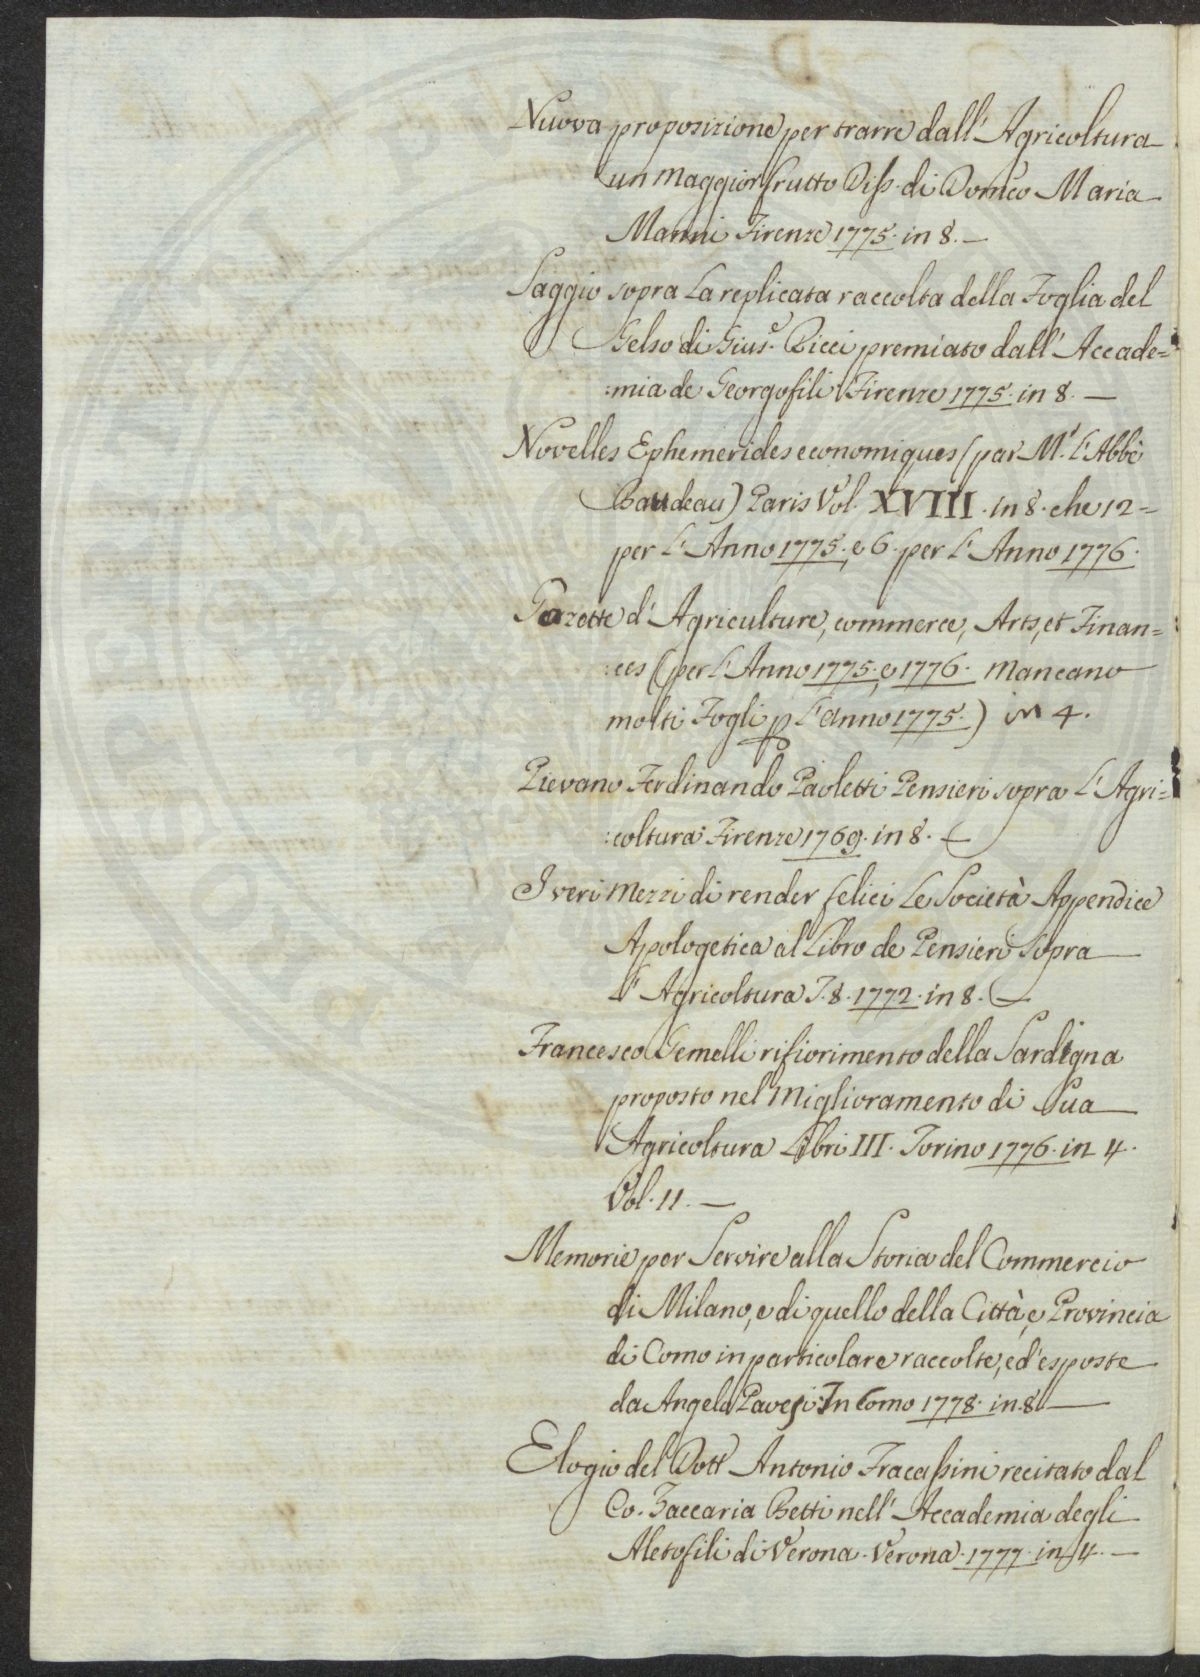 Nuova proposizione per trarre dall' Agricoltura
un maggior frutto Diss. di Domco Maria
Manni Firenze 1775. in 8. —
Saggio sopra la replicata raccolta della Foglia del
Gelso di Giuse. Ricci premiato dall' Accade=
:mia de Georgofili Firenze 1775. in 8. —
Novelles Ephemerides economiques (par Mr. l'Abbè
Baudeau) Paris Vol. XVIII. in 8. che 12=
per l'Anno 1775. e 6. per l'Anno 1776.
Gazzette d' Agriculture, commerce, Arts, et Finan=
:ces (per l'Anno 1775. e 1776. mancano
molti Fogli p l'anno 1775.) in 4.
Pievano Ferdinando Paoletti Pensieri sopra l'Agri=
:coltura: Firenze 1769. in 8. —
I veri mezzi di render felici le Società Appendice
Apologetica al Libro de Pensieri sopra
l' Agricoltura F. 8. 1772. in 8. —
Francesco Gemelli rifiorimento della Sardigna
proposto nel Miglioramento di Sua
Agricoltura Libri III. Torino 1776. in 4.
Vol. 11. —
Memorie per Servire alla Storia del Commercio
di Milano, e di quello della Città, e Provincia
di Como in particolare raccolte, ed' esposte
da Angelo Pavesi: In Como 1778. in 8. —
Elogio del Dottr Antonio Fracassini recitato dal
Co. Zaccaria Betti nell' Accademia degli
Aletofili di Verona. Verona. 1777. in 4. —